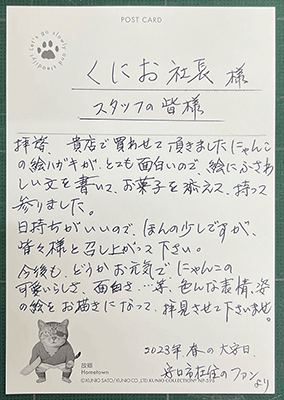 POST CARD
Let's go slowly and steadily!
くにお社長 様
スタッフの皆様
拝啓 貴店で買わせて頂きましたにゃんこ
の絵ハガキが、とても面白いので、絵にふさわ
しい文を書いて、お菓子を添えて、持って
参りました。
日持ちがいいので、ほんの少しですが、
皆々様と召し上がって下さい。
今後も、どうかお元気で にゃんこの
可愛いらしさ、面白さ…等、色んな表情、姿
の絵をお描きになって、拝見させて下さいませ。
2023年 春の大安日.
在住のファン
より
故郷
Hometown
©KUNIO SATO/KUNIO CO.,LTD. KUNIO COLLECTION